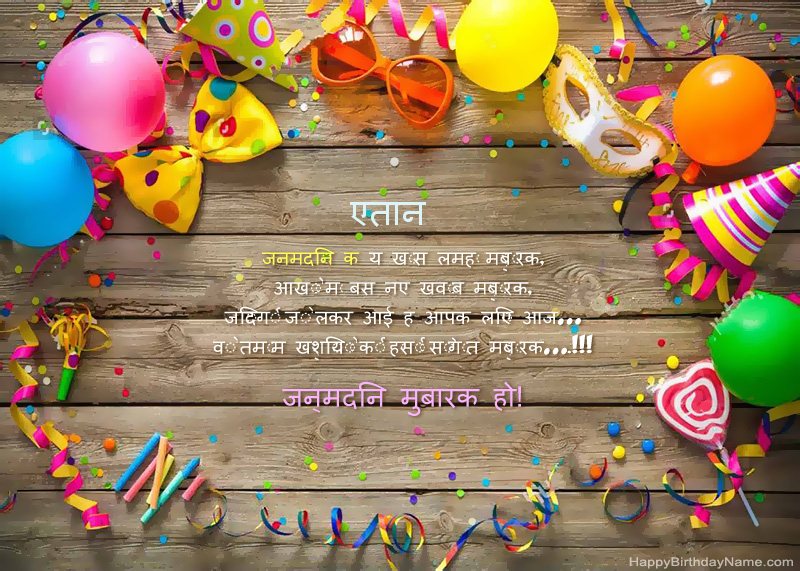 एतान
जनमदिन क य खास लमहा मुबारक,
आखों में बसे नए खवाब मुबारक,
जिंदगी जो लेकर आई ह आपक लिए आज...
वो तमाम खुशियों की हसीं सोगात मुबारक...!!!
जन्मदिन मुबारक हो!
HappyBirthdayName.com